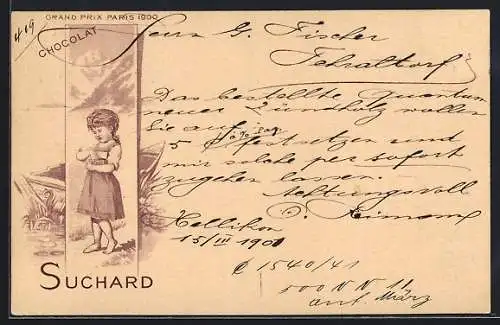 419
GRAND PRIX PARIS 1900
CHOCOLAT
Herrn G. Fischer
Fehraltorf
Das bestellte Quantum
neues Zündholz wollen
Sie auf
5 festsetzen und
mir solche per sofort
zugehen lassen.
Achtungsvoll
Hellikon
15/III 1901
SUCHARD
1540/41
500 N N 11
März